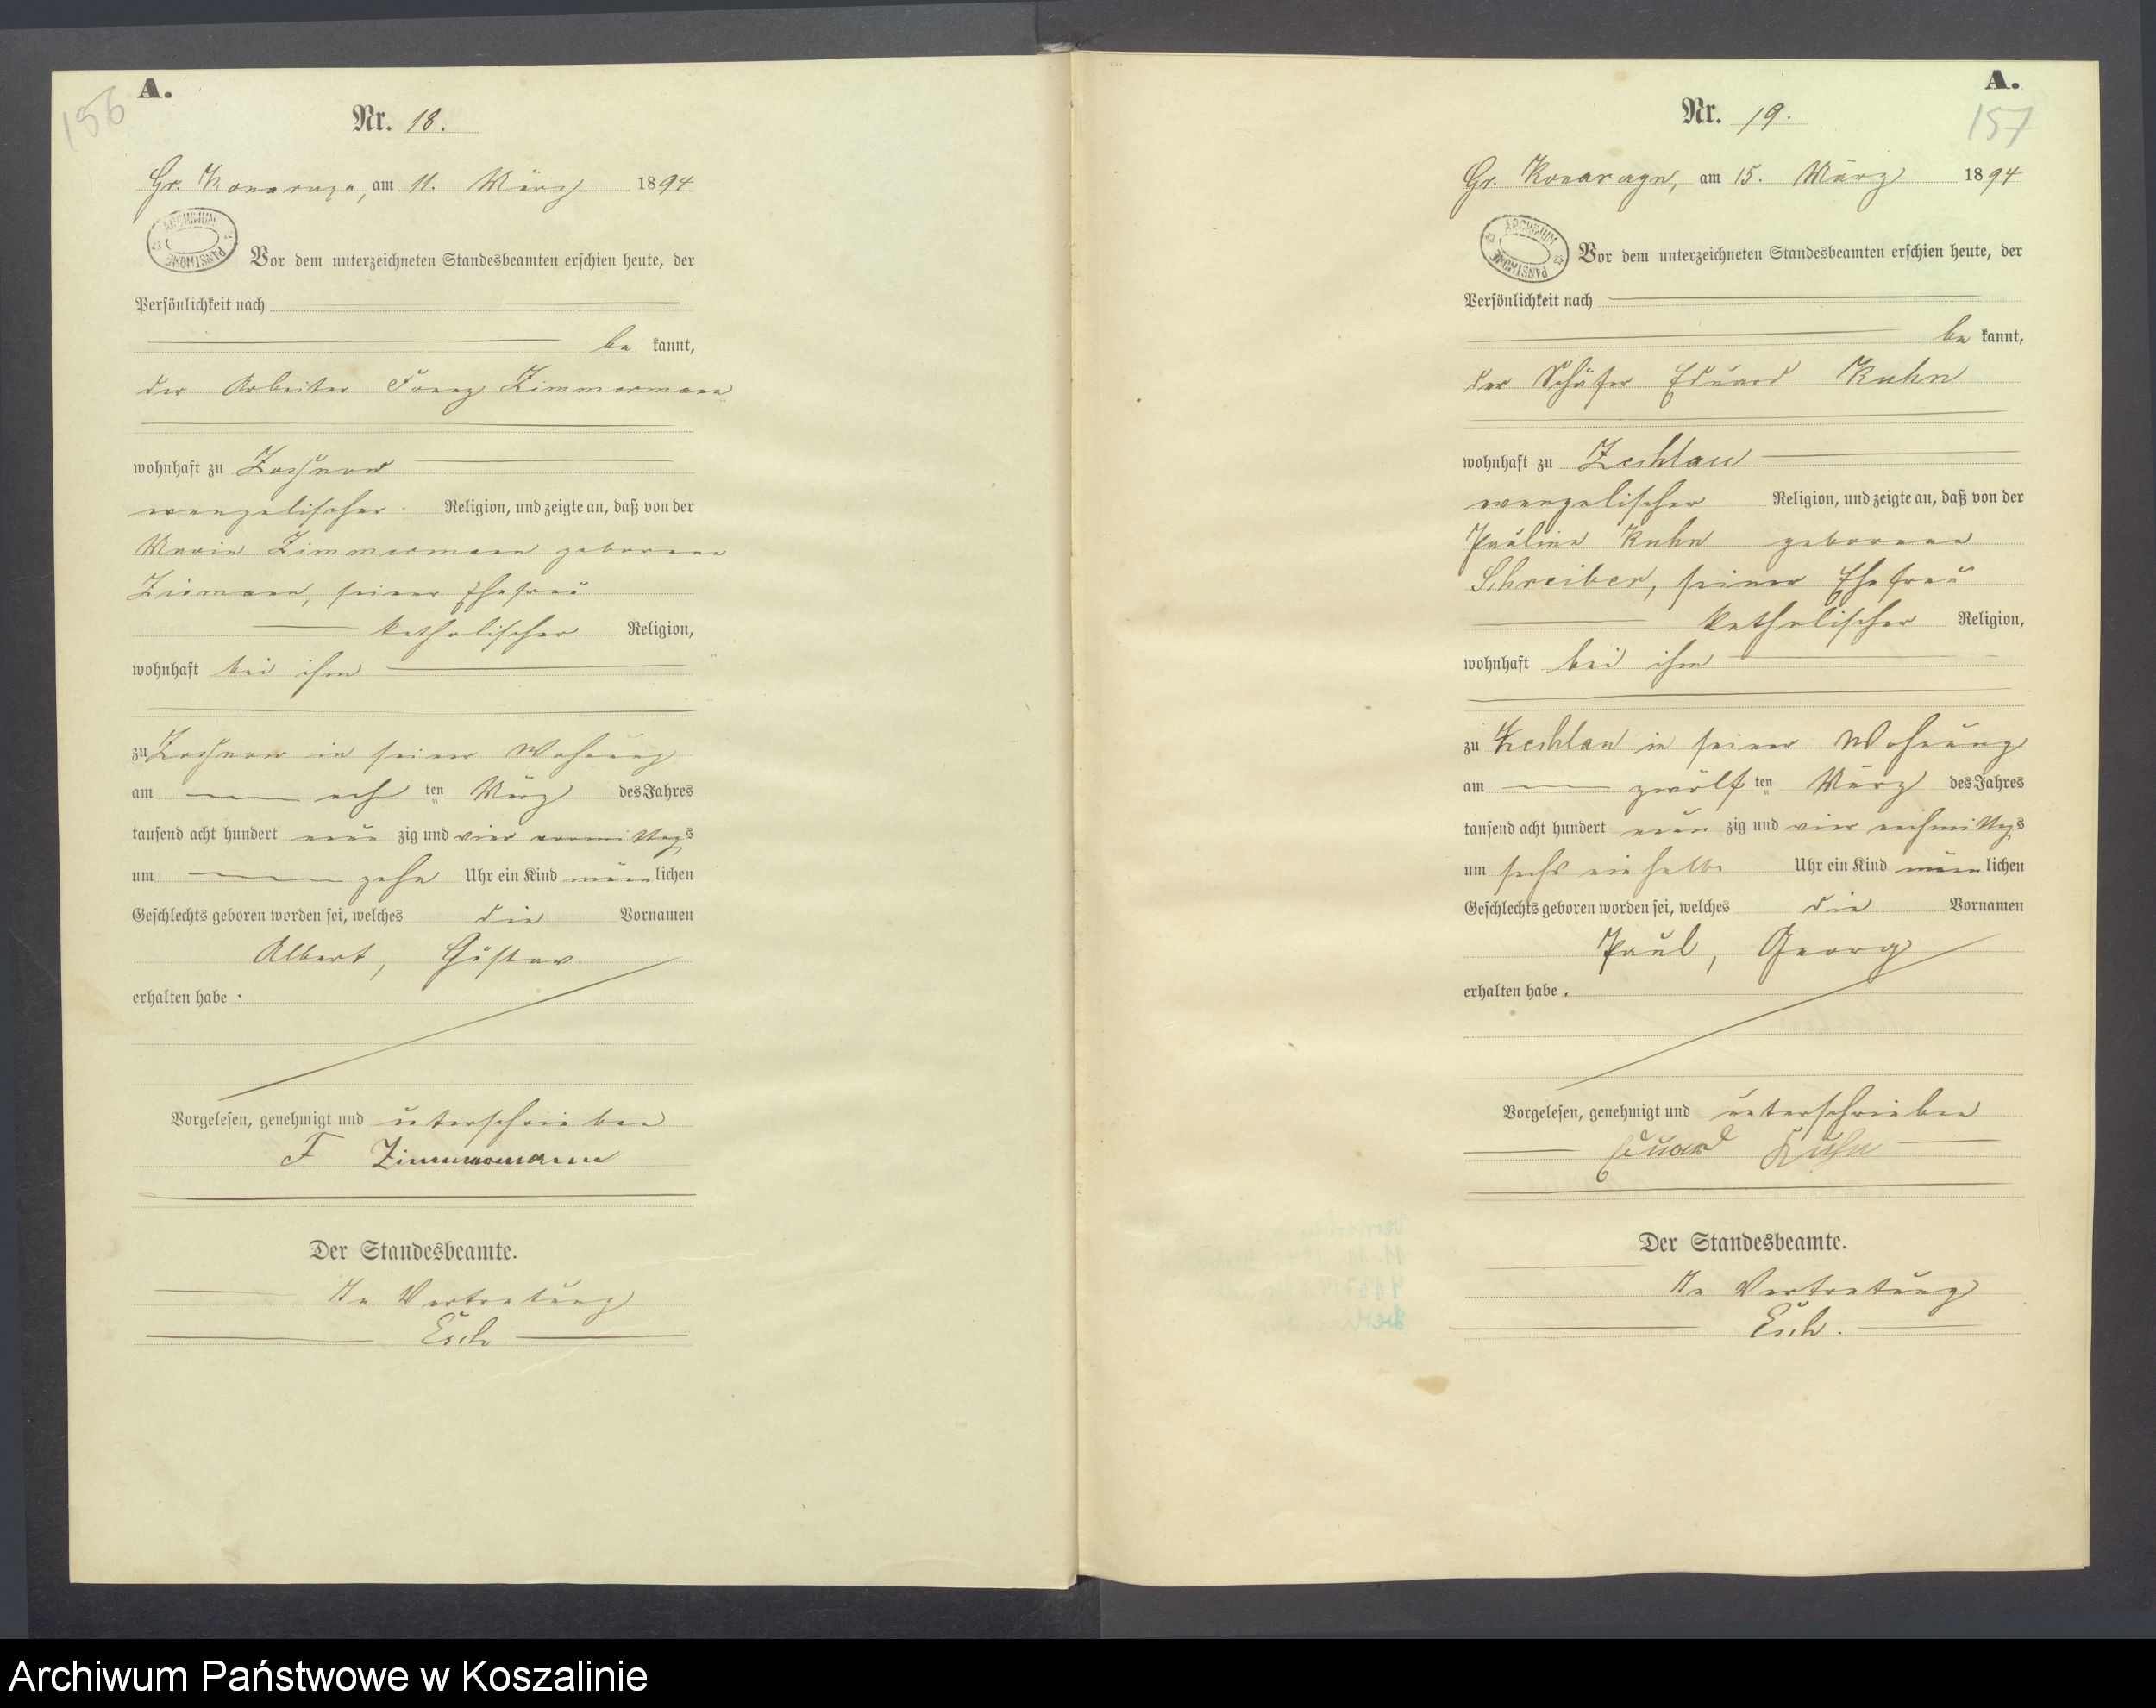 156
A.
Nr. 18.
Gr. Konarzyn, am 11. März 1894
ARCHIWUM PAŃSTWOWE
Vor dem unterzeichneten Standesbeamten erschien heute, der
Persönlichkeit nach
be kannt,
der Arbeiter Franz Zimmermann
wohnhaft zu Zossnow
evangelischer Religion, und zeigte an, daß von der
Marie Zimmermann geborene
seiner Ehefrau
katholischer Religion,
wohnhaft bei ihm
zu Zossnow in seiner Wohnung
am ach ten März des Jahres
tausend acht hundert neun zig und vier vormittags
um zehn Uhr ein Kind männlichen
Geschlechts geboren worden sei, welches die Vornamen
Albert, Gustav
erhalten habe.
Vorgelesen, genehmigt und unterschrieben
F Zimmermann
Der Standesbeamte.
In Vertretung
Esch
A.
157
Nr. 19.
Gr. Konarzyn, am 15. März 1894
ARCHIWUM PAŃSTWOWE
Vor dem unterzeichneten Standesbeamten erschien heute, der
Persönlichkeit nach
be kannt,
der Schäfer Eduard Kuhn
wohnhaft zu Zechlau
evangelischer Religion, und zeigte an, daß von der
Pauline Kuhn geborene
Schreiber, seiner Ehefrau
katholischer Religion,
wohnhaft bei ihm
zu Zechlau in seiner Wohnung
am zwölf ten März des Jahres
tausend acht hundert neun zig und vier nachmittags
um sechs einhalb Uhr ein Kind männlichen
Geschlechts geboren worden sei, welches die Vornamen
Paul, Georg
erhalten habe.
Vorgelesen, genehmigt und unterschrieben
Eduard Kuhn
Der Standesbeamte.
In Vertretung
Esch.
Archiwum Państwowe w Koszalinie